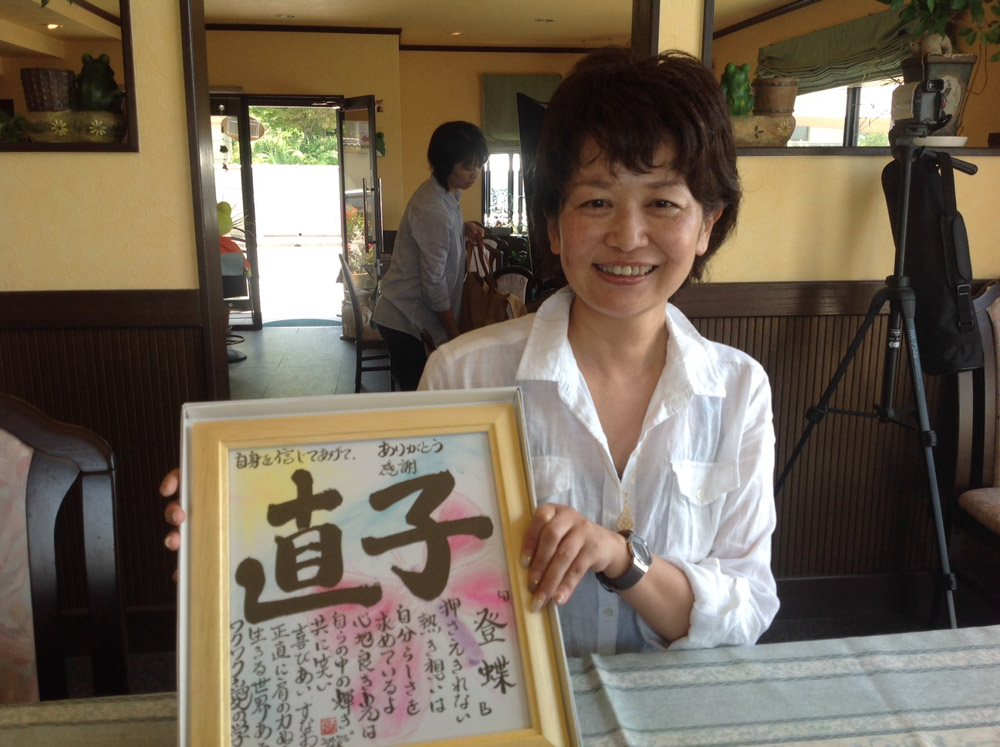 自身を信じてあげて、
ありがとう
感謝
直子
登蝶
押さえきれない
熱き想いは
自分らしさを
求めているよ
心地良き光は
自らの中の輝き
共に笑い
喜びあい すなわ
正直に肩の力ぬ
生きる世界あ
ワクワク愛の学